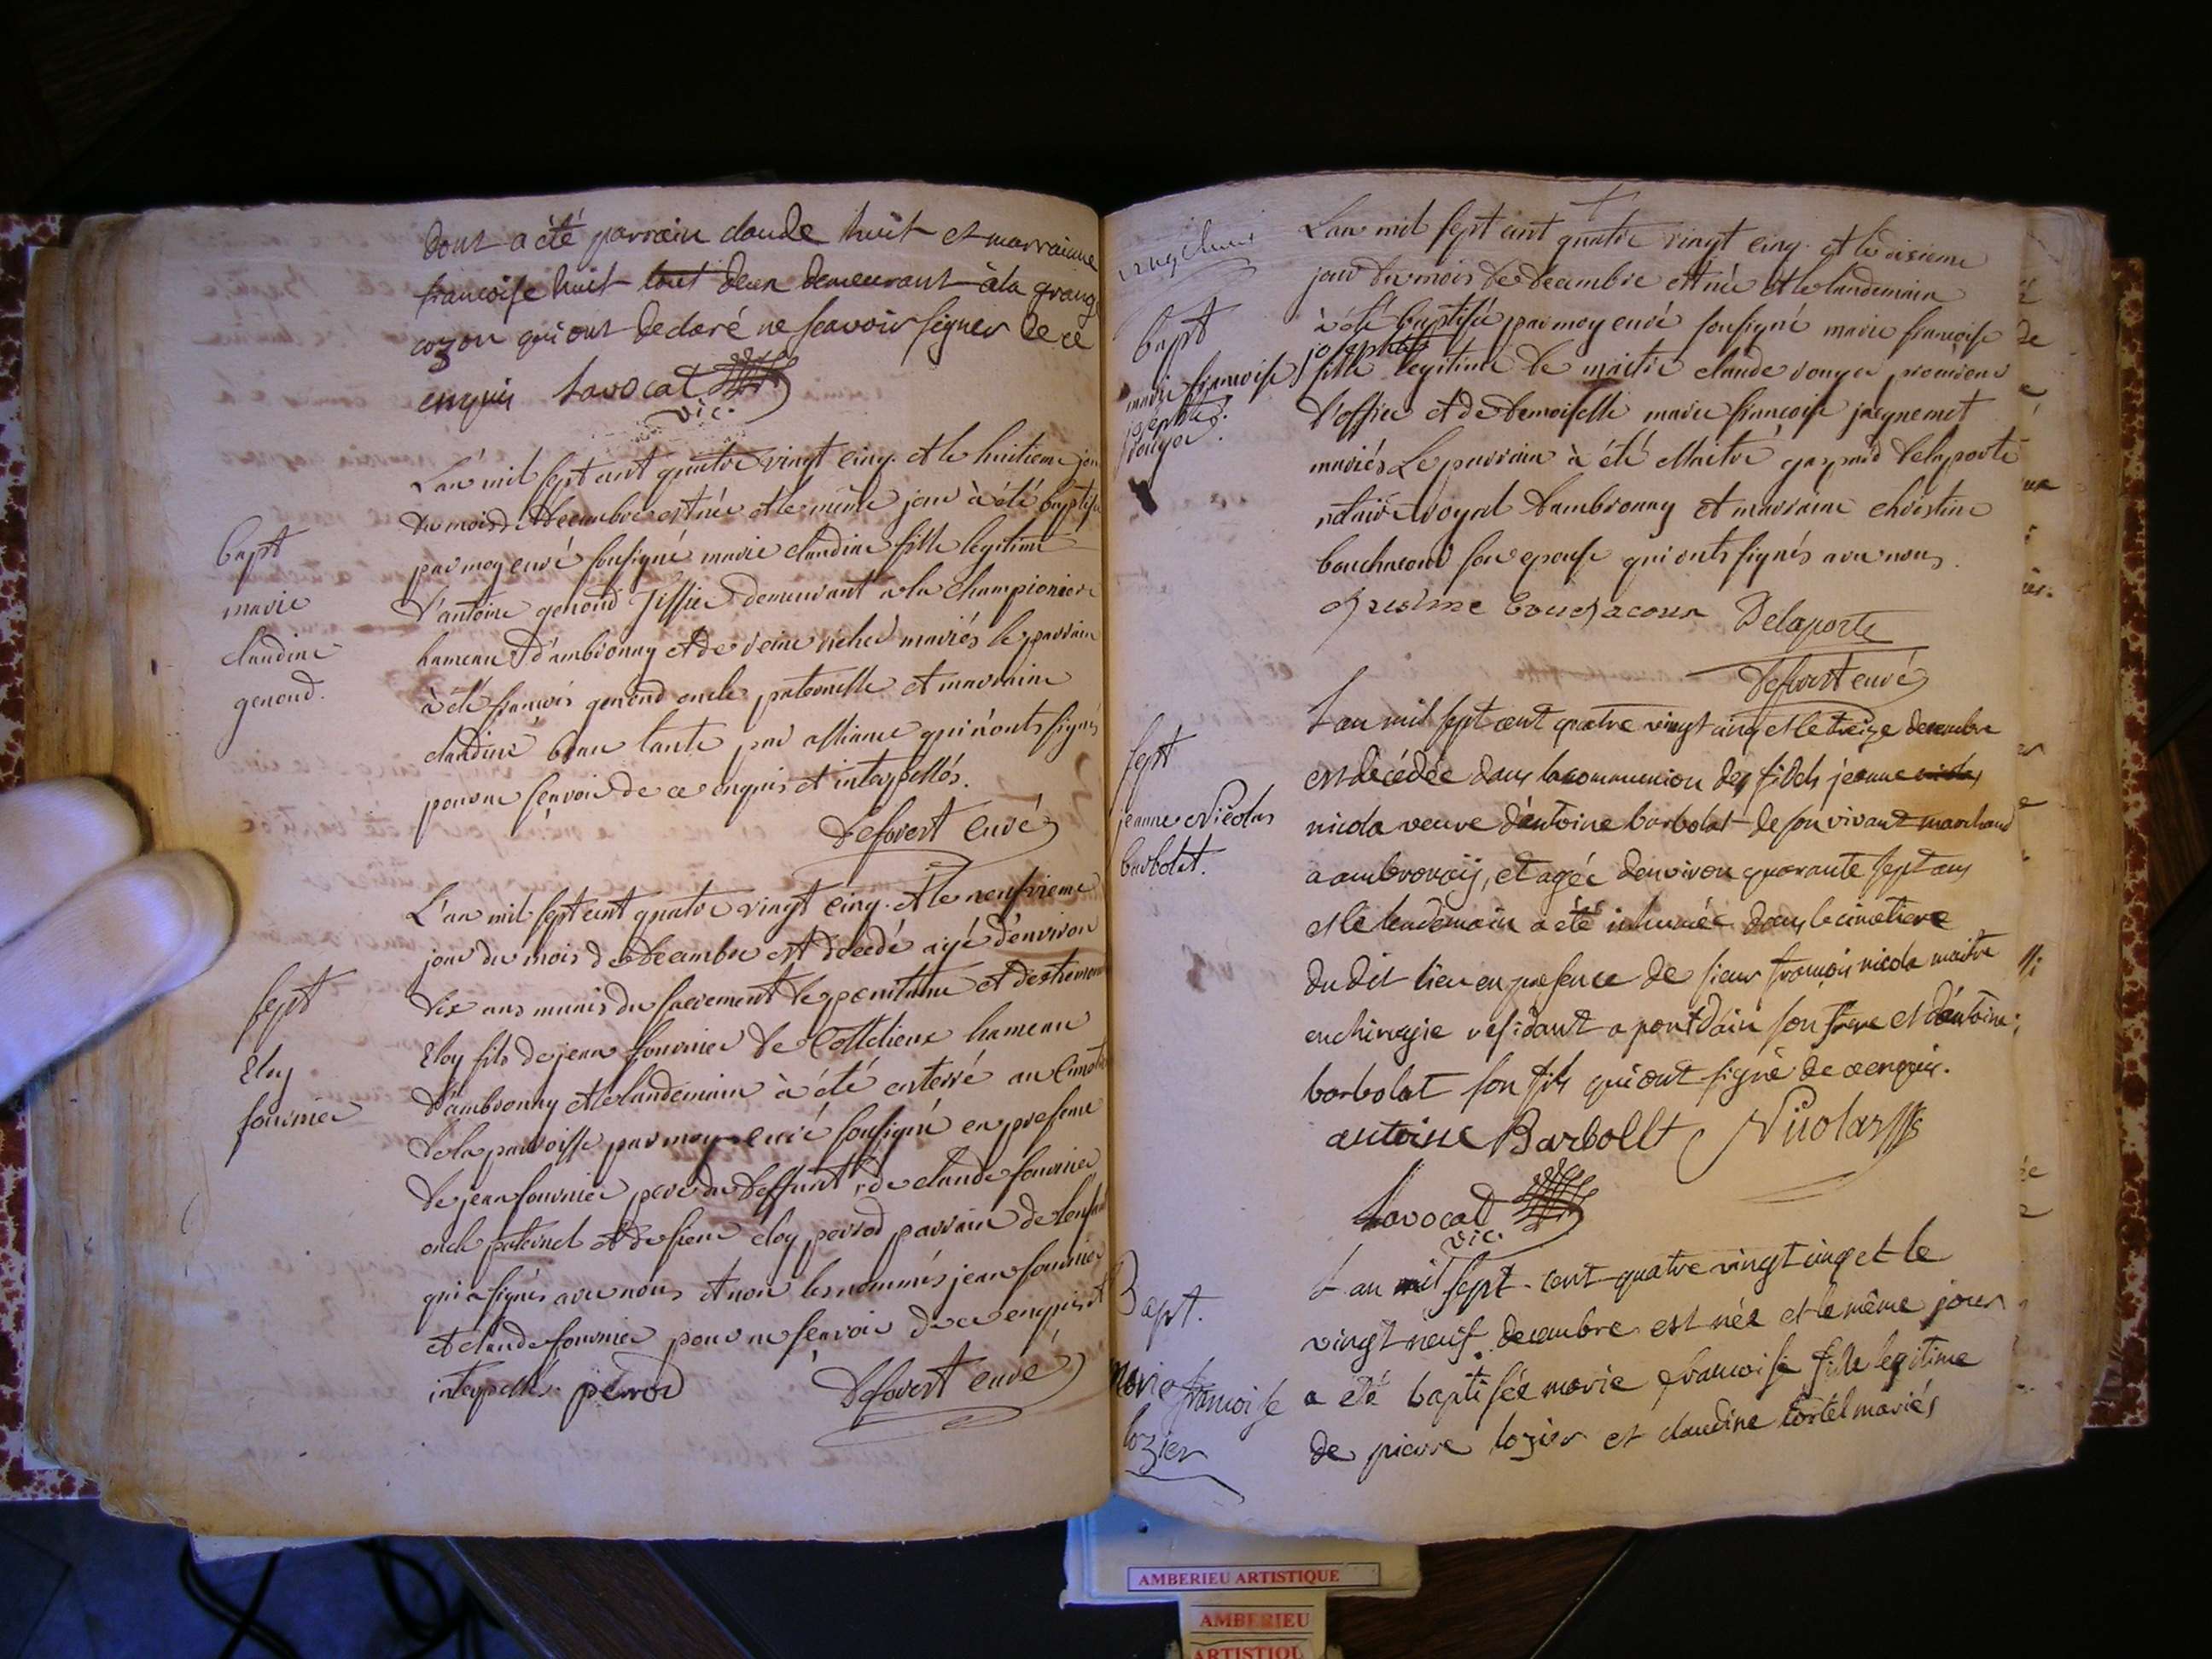 dont a été parrain claude huit et marrainne
francoise huit tout deux demeurant à la grang
cozon qui ont declaré ne scavoir signer de ce
enquis Lavocat
vic.
L'an mil sept cent quatre vingt cinq et le huitieme jou
du mois decembre est née et le même jour à été baptisée
par moy curé soussigné marie claudine fille legitime
d'antoine genoud tissier demeurant a la championiere
hameau d'ambronay et de reine richer mariés le parrain
à été francois genoud oncle paternelle et marraine
claudine beau tante par alliance qui n'onts signés
pour ne scavoir de ce enquis et interpellés.
Deforest curé
bapt
marie
claudine
genoud.
L'an mil sept cent quatre vingt cinq et le neufvieme
jour du mois de decembre est decedé agé d'environ
dix ans munis du sacrement de penitence et d'extremon
Eloy fils de jean fournier de Cottelieux hameau
d'ambronay et le landemain à été enterré au Cimetie
de la paroisse par moy curé sousigné en presence
de jean fournier pere du deffunt, de claude fournier
oncle paternel et de sieur eloy perrod parrain de l'enfant
qui a signés avec nous et non les nommés jean fournier
et claude fournier pour ne scavoir de ce enquis et
interpellés. perrod Deforest curé
sept
Eloy
fournier
L'an mil sept cent quatre vingt cinq et le dixieme
jour du mois de decembre est née et le landemain
à été baptisée par moy curé sousigné marie francoise
josephte
fille legitime de maitre claude rouyer procureur
d'office et de demoiselle marie francoise jacquemet
mariés Le parrain à été Maitre gaspard delaporte
notaire royal d'ambronay et marraine christine
bouchacour son epouse qui onts signés avec nous.
christine bouchacour Delaporte
Deforest curé
bapt
marie francoise
josephte
rouyer.
L'an mil sept cent quatre vingt cinq et le treize decembre
est decédée dans la communion des fidels jeanne nicolas
nicola veuve d'antoine barbolat de son vivant marchand
a ambronay, et agée d'environ quarante sept ans
et le lendemain a été inhumée dans le cimetiere
du dit lieu en presence de sieur francois nicola maitre
en chirurgie residant a pontdain son frere et d'antoine
barbolat son fils qui ont signé de ce enquis.
antoine Barbollt Nicolas
Lavocat
vic.
sept
jeanne Nicolas
barbolat.
L'an mil sept cent quatre vingt cinq et le
vingt neuf decembre est née et le même jour
a été baptisée marie francoise fille legitime
de pierre lozier et claudine tortel mariés
Bapt.
marie francoise
lozier
AMBERIEU ARTISTIQUE
AMBERIEU
ARTISTIQU